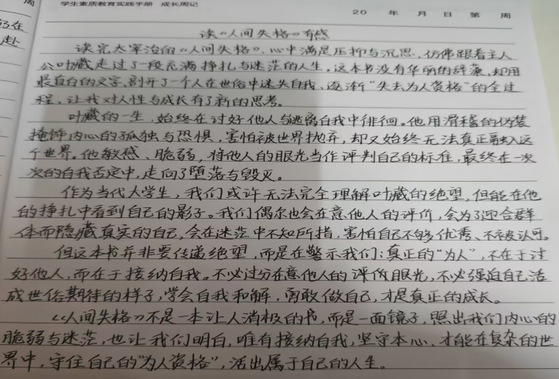 学生素质教育实践手册 成长周记
20 年 月 日 第 周
读《人间失格》有感
读完太宰治的《人间失格》,心中满是压抑与沉思,仿佛跟着主人
公叶藏走过了一段充满挣扎与迷茫的人生。这本书没有华丽的辞藻,却用
最直白的文字,剖开了一个人在世俗中迷失自我、逐渐“失去为人资格”的全过
程,让我对人性与成长有了新的思考。
叶藏的一生,始终在讨好他人与逃离自我中徘徊。他用滑稽的伪装
掩饰内心的孤独与恐惧,害怕被世界抛弃,却又始终无法真正融入这
个世界。他敏感、脆弱,将他人的眼光当作评判自己的标准,最终在一次
次的自我否定中,走向了堕落与毁灭。
作为当代大学生,我们或许无法完全理解叶藏的绝望,但能在他
的挣扎中看到自己的影子。我们偶尔也会在意他人的评价,会为了迎合群
体而隐藏真实的自己,会在迷茫中不知所措,害怕自己不够优秀、不被认可。
但这本书并非要传递绝望,而是在警示我们:真正的“为人”,不在于讨
好他人,而在于接纳自我。不必过分在意他人的评价眼光,不必强迫自己活
成世俗期待的样子,学会自我和解,勇敢做自己,才是真正的成长。
《人间失格》不是一本让人消极的书,而是一面镜子,照出我们内心的
脆弱与迷茫,也让我们明白,唯有接纳自我,坚守本心,才能在复杂的世
界中,守住自己的“为人资格”,活出属于自己的人生。